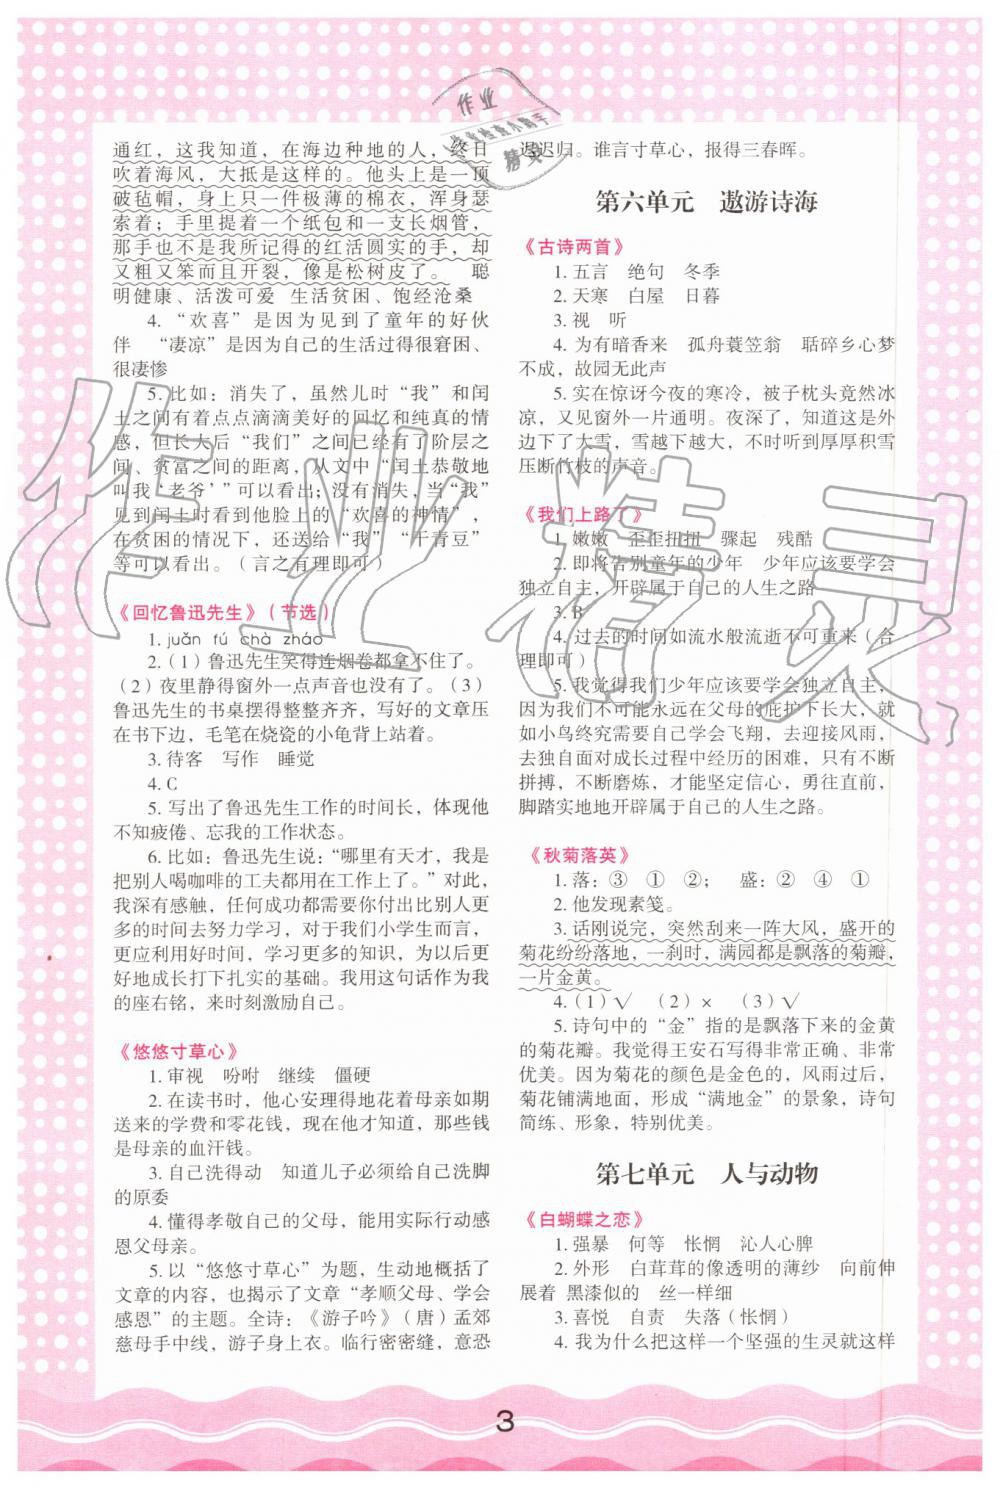 通红，这我知道，在海边种地的人，终日
吹着海风，大抵是这样的。他头上是一顶
破毡帽，身上只一件极薄的棉衣，浑身瑟
索着；手里提着一个纸包和一支长烟管，
那手也不是我所记得的红活圆实的手，却
又粗又笨而且开裂，像是松树皮了。 聪
明健康、活泼可爱 生活贫困、饱经沧桑
4. “欢喜”是因为见到了童年的好伙
伴 “凄凉”是因为自己的生活过得很窘困、
很凄惨
5. 比如：消失了，虽然儿时“我”和闰
土之间有着点点滴滴美好的回忆和纯真的情
感，但长大后“我们”之间已经有了阶层之
间、贫富之间的距离，从文中“闰土恭敬地
叫我‘老爷’”可以看出；没有消失，当“我”
见到闰土时看到他脸上的“欢喜的神情”，
在贫困的情况下，还送给“我”“干青豆”
等可以看出。（言之有理即可）
《回忆鲁迅先生》（节选）
1. juǎn fú chà zháo
2.（1）鲁迅先生笑得连烟卷都拿不住了。
（2）夜里静得窗外一点声音也没有了。（3）
鲁迅先生的书桌摆得整整齐齐，写好的文章压
在书下边，毛笔在烧瓷的小龟背上站着。
3. 待客 写作 睡觉
4. C
5. 写出了鲁迅先生工作的时间长，体现他
不知疲倦、忘我的工作状态。
6. 比如：鲁迅先生说：“哪里有天才，我是
把别人喝咖啡的工夫都用在工作上了。”对此，
我深有感触，任何成功都需要你付出比别人更
多的时间去努力学习，对于我们小学生而言，
更应利用好时间，学习更多的知识，为以后更
好地成长打下扎实的基础。我用这句话作为我
的座右铭，来时刻激励自己。
《悠悠寸草心》
1. 审视 吩咐 继续 僵硬
2. 在读书时，他心安理得地花着母亲如期
送来的学费和零花钱，现在他才知道，那些钱
是母亲的血汗钱。
3. 自己洗得动 知道儿子必须给自己洗脚
的原委
4. 懂得孝敬自己的父母，能用实际行动感
恩父母亲。
5. 以“悠悠寸草心”为题，生动地概括了
文章的内容，也揭示了文章“孝顺父母、学会
感恩”的主题。全诗：《游子吟》（唐）孟郊
慈母手中线，游子身上衣。临行密密缝，意恐
迟迟归。谁言寸草心，报得三春晖。
第六单元 遨游诗海
《古诗两首》
1. 五言 绝句 冬季
2. 天寒 白屋 日暮
3. 视 听
4. 为有暗香来 孤舟蓑笠翁 聒碎乡心梦
不成，故园无此声
5. 实在惊讶今夜的寒冷，被子枕头竟然冰
凉，又见窗外一片通明。夜深了，知道这是外
边下了大雪，雪越下越大，不时听到厚厚积雪
压断竹枝的声音。
《我们上路了》
1. 嫩嫩 歪歪扭扭 骤起 残酷
2. 即将告别童年的少年 少年应该要学会
独立自主，开辟属于自己的人生之路
3. B
4. 过去的时间如流水般流逝不可重来（合
理即可）
5. 我觉得我们少年应该要学会独立自主，
因为我们不可能永远在父母的庇护下长大，就
如小鸟终究需要自己学会飞翔，去迎接风雨，
去独自面对成长过程中经历的困难，只有不断
拼搏，不断磨炼，才能坚定信心，勇往直前，
脚踏实地地开辟属于自己的人生之路。
《秋菊落英》
1. 落：③ ① ②； 盛：② ④ ①
2. 他发现素笺。
3. 话刚说完，突然刮来一阵大风，盛开的
菊花纷纷落地，一刹时，满园都是飘落的菊瓣，
一片金黄。
4.（1）√ （2）× （3）√
5. 诗句中的“金”指的是飘落下来的金黄
的菊花瓣。我觉得王安石写得非常正确、非常
优美。因为菊花的颜色是金色的，风雨过后，
菊花铺满地面，形成“满地金”的景象，诗句
简练、形象，特别优美。
第七单元 人与动物
《白蝴蝶之恋》
1. 强暴 何等 怅惘 沁人心脾
2. 外形 白茸茸的像透明的薄纱 向前伸
展着 黑漆似的 丝一样细
3. 喜悦 自责 失落（怅惘）
4. 我为什么把这样一个坚强的生灵就这样
3
作业精灵